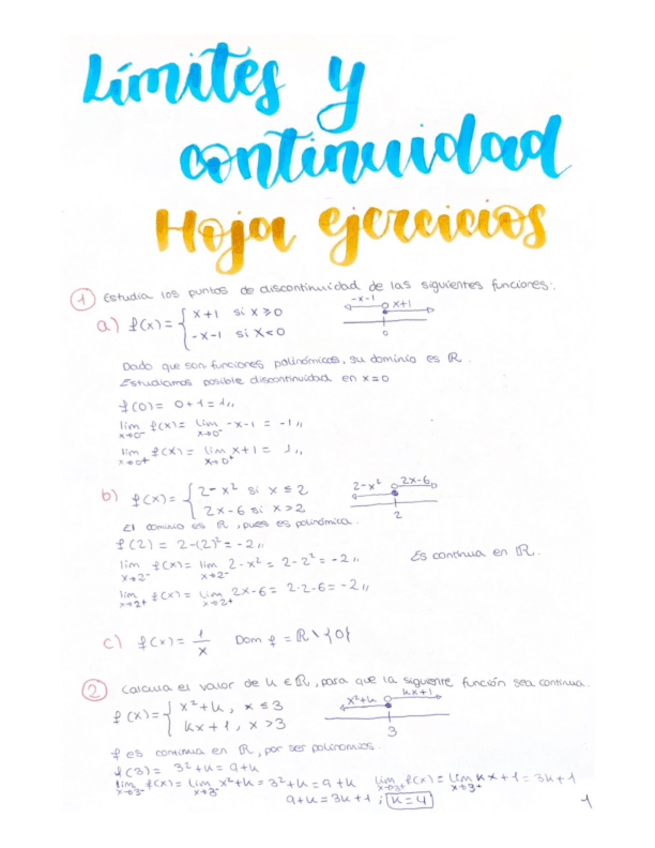 Límites y
continuidad
Hoja ejercicios
1 Estudia los puntos de discontinuidad de las siguientes funciones:
a) f(x) = { x+1 si x ≥ 0
-x-1 si x < 0
-x-1 x+1
0
Dado que son funciones polinómicas, su dominio es ℝ.
Estudiamos posible discontinuidad en x=0
f(0) = 0+1 = 1,,
lim x→0⁻ f(x) = lim x→0⁻ -x-1 = -1,,
lim x→0⁺ f(x) = lim x→0⁺ x+1 = 1,,
b) f(x) = { 2-x² si x ≤ 2
2x-6 si x > 2
2-x² 2x-6
2
El dominio es ℝ, pues es polinómica.
f(2) = 2-(2)² = -2,,
lim x→2⁻ f(x) = lim x→2⁻ 2-x² = 2-2² = -2,,
Es continua en ℝ.
lim x→2⁺ f(x) = lim x→2⁺ 2x-6 = 2·2-6 = -2,,
c) f(x) = 1/x Dom f = ℝ\{0}
2 Calcula el valor de k ∈ ℝ, para que la siguiente función sea continua.
f(x) = { x²+k, x ≤ 3
kx+1, x > 3
x²+k kx+1
3
f es continua en ℝ, por ser polinomios.
f(3) = 3²+k = 9+k
lim x→3⁻ f(x) = lim x→3⁻ x²+k = 3²+k = 9+k lim x→3⁺ f(x) = lim x→3⁺ kx+1 = 3k+1
9+k = 3k+1 ; k=4
1